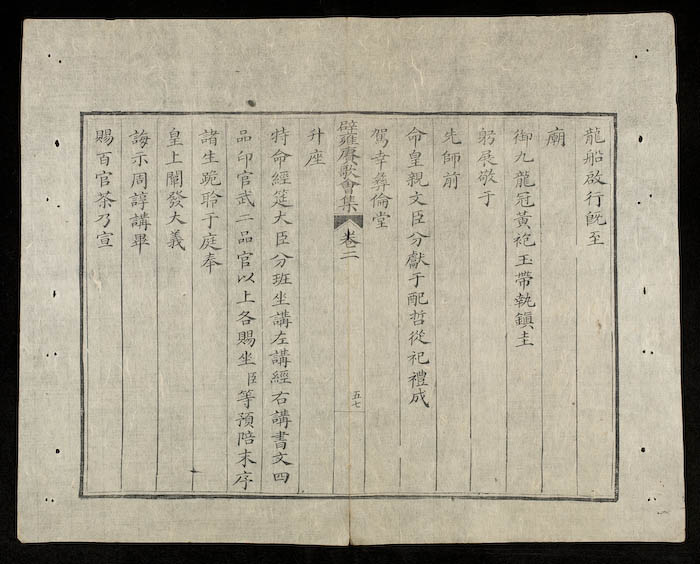 龍船啟行旣至
廟
御九龍冠黃袍玉帶執鎮圭
躬展敬于
先師前
命皇親文臣分獻于配哲從祀禮成
駕幸彝倫堂
辟雍賡歌會集 卷二 五七
升座
特命經筵大臣分班坐講左講經右講書文四
品印官武二品官以上各賜坐臣等預陪末序
諸生跪聆于庭奉
皇上闡發大義
誨示周諄講畢
賜百官茶乃宣